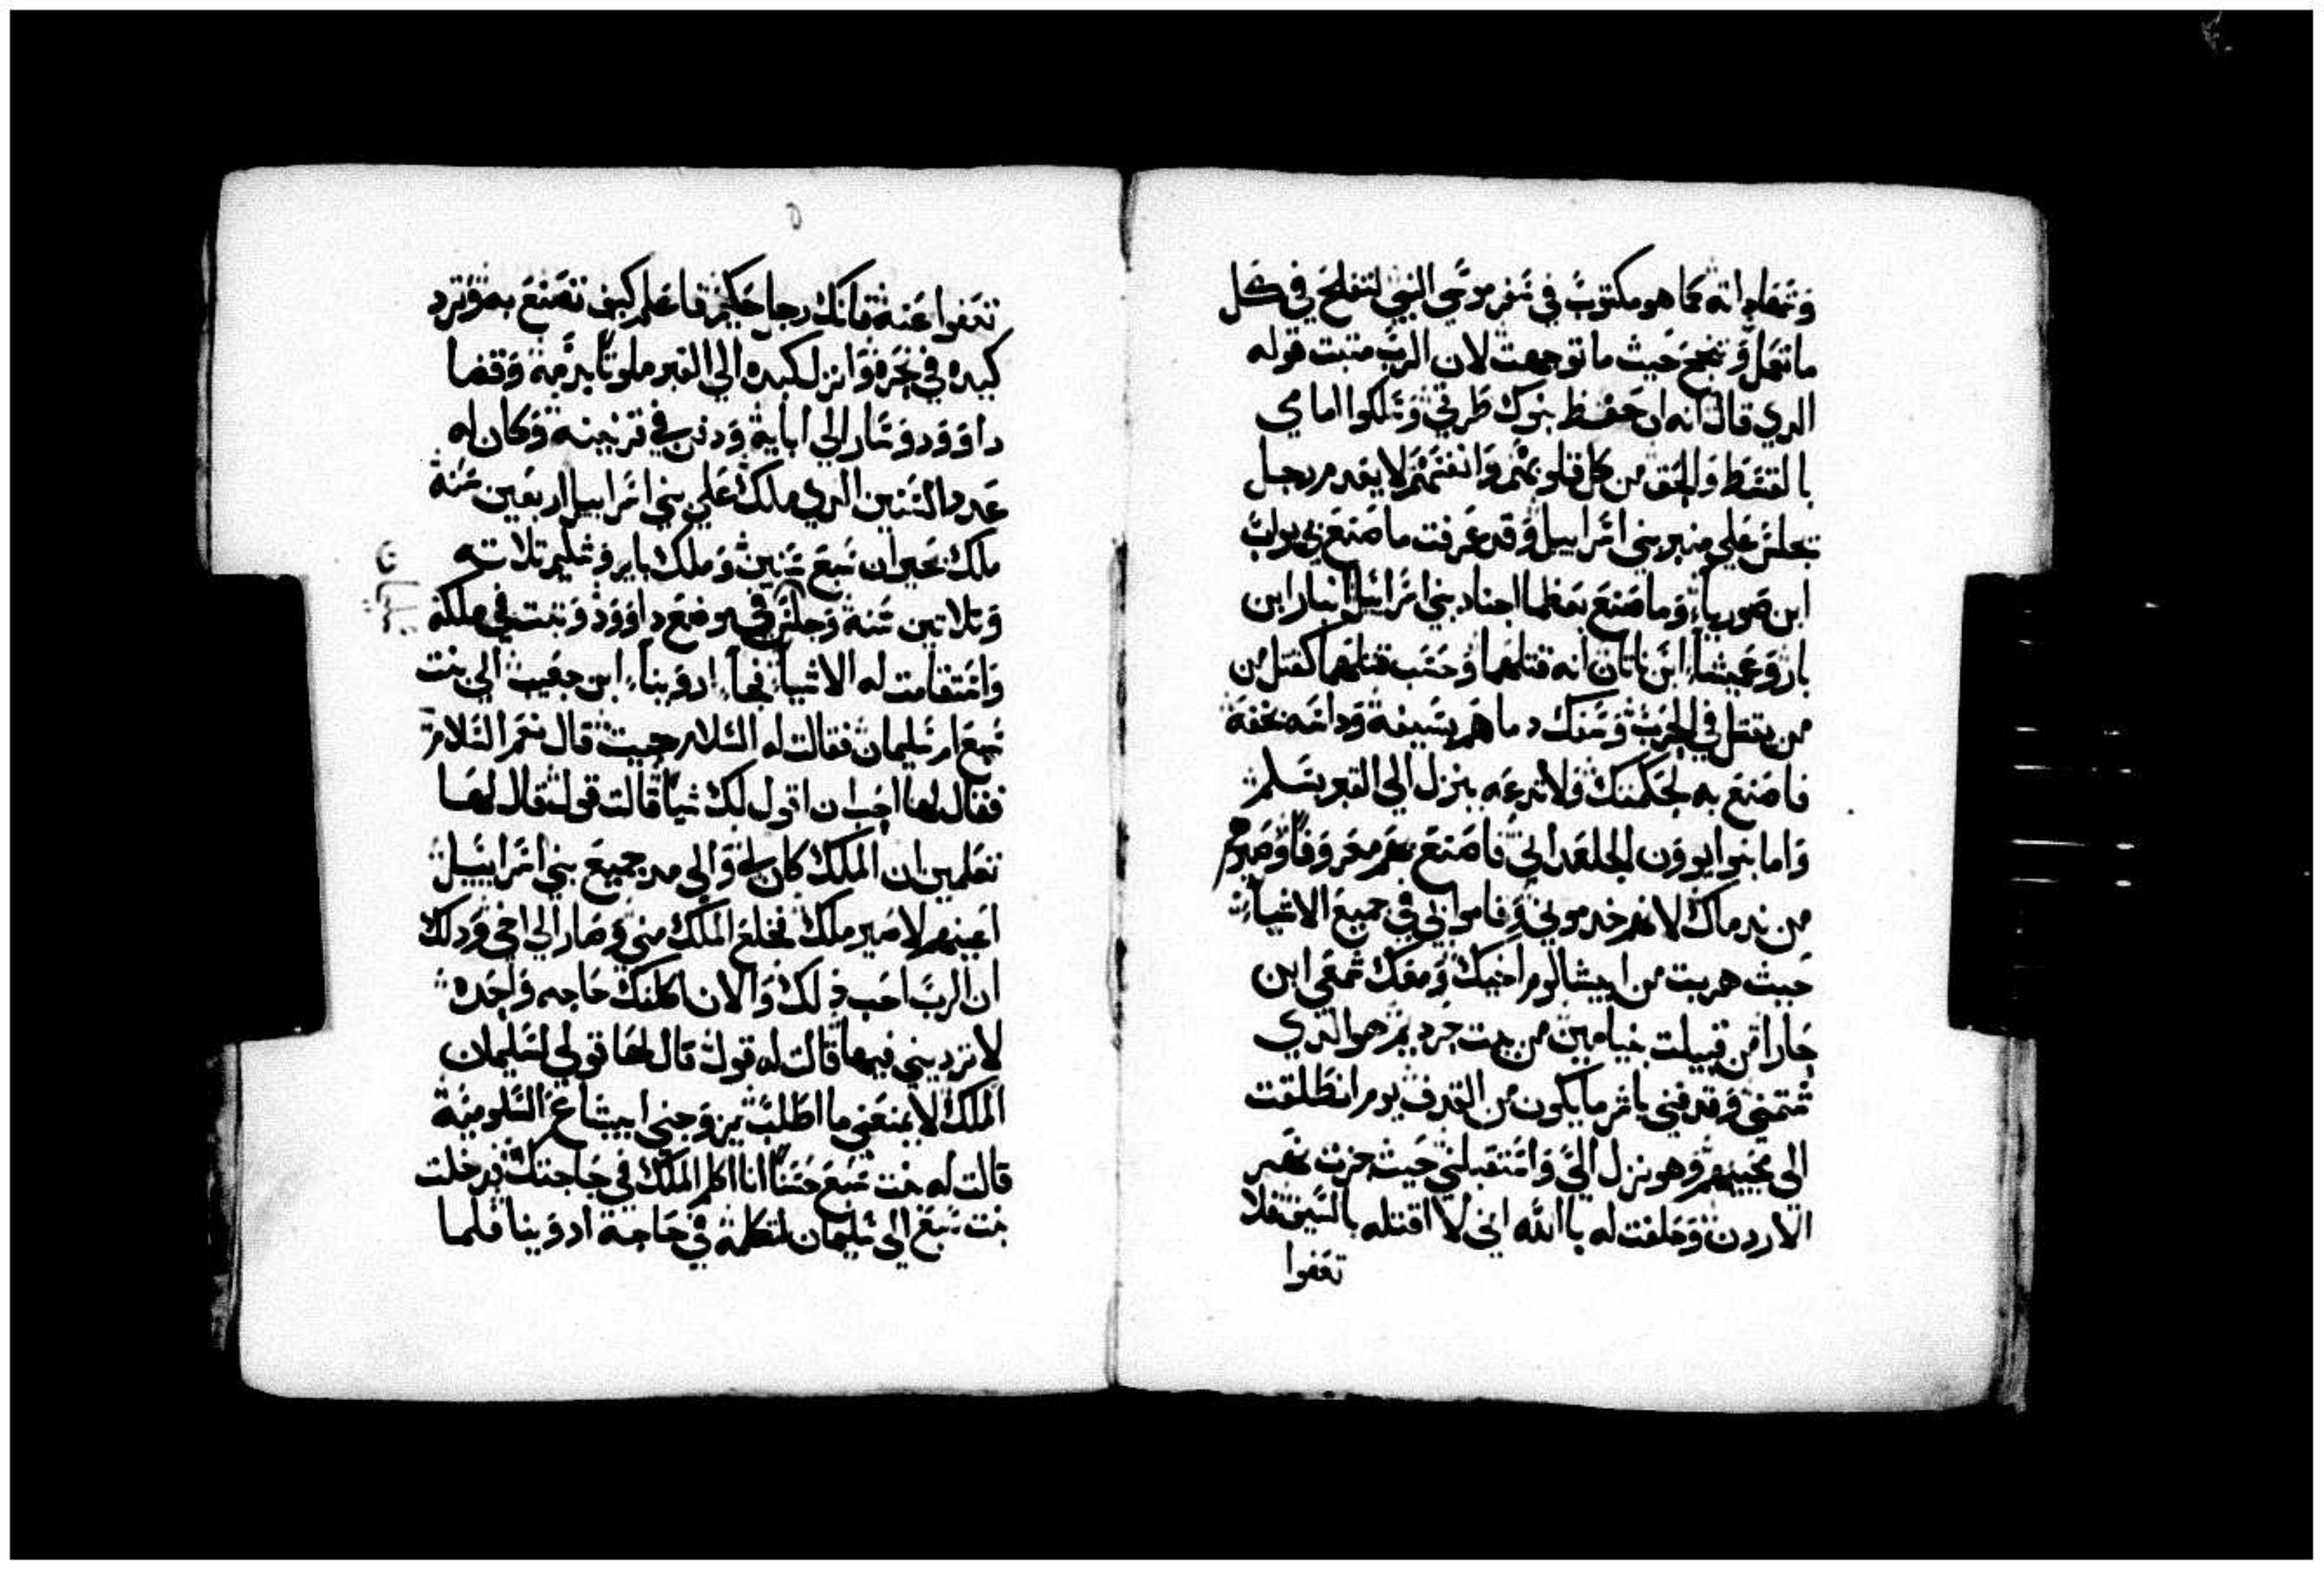 وشهاداته كما هو مكتوب في سفر موسي النبي لتفلح في كل
ما تعمل وتنجح حيث ما توجهت لان الرب متبت قوله
الدي قال انه ان حفظ بنوك طرقي وسلكوا امامي
بالقسط والحق من كل قلوبهم وانفسهم لا يعدم رجل
يجلس علي منبر بني اسراييل وقد عرفت ما صنع بي يواب
ابن صوريا وما صنع بعظما اجناد بني اسراييل انبار ابن
بار وعميشا ابن ناتان انه قتلهما وحسب قتلهما كقتل من
من يقتل في الحرب وسفك دماهم بسيفه وداسه بخفه
فاصنع به بحكمتك ولا تدعه ينزل الي القبر بسلم
واما بنوا يوون الجلعداني فاصنع بهم معروفا وصيرهم
من ندماك لانهم خدموني وقاموا لي في جميع الاشيا
حيث هربت من ابيشالوم اخيك ومعك شمعي ابن
جارا من قبيلت بنيامين من بيت حرديم هو الدي
شتمني وقدفني باشر ما يكون من القدف يوم انطلقت
الي محنيهم وهو نزل الي واستقبلني حيث جزت نهر
الاردن وحلفت له باالله اني لا اقتله بالسيف فلا
تعفوا
تعفوا عنه فانك رجل حكيم فاعلم كيف تصنع به وترد
كيده في نحره وانزل كبده الي القبر ملوتا بدمه وقضا
داوود وسار الي ابايه ودفن في قرييته وكان له
عدد السنين الدي ملك علي بني اسراييل اربعين سنه
ملك بحبران سبع سنين وملك بايروشليم تلاته
وتلاتين سنه وجلس في موضع داوود وتبت في ملكه
واستقامت له الاشيا فجا ادوينا ابن جعيب الي بنت
سبع ام سليمان فقالت له السلام جيت قال نعم السلام
فقال لها احب ان اقول لك شيا قالت قول قال لها
تعلمين ان الملك كان لي والي مد جميع بني اسراييل
اعينهم لاصير ملك فخلع الملك مني وصار الي اخي ودلك
ان الرب احب ذلك والان اكلمك حاجه واحده
لا ترديني فيها قالت له قول قال لها قولي لسليمان
الملك لا يمنعني ما اطلب يزوجني ابيشاع السلوميه
قالت له بنت سبع حسنا انا اكلم الملك في حاجتك فدخلت
بنت سبع الي سليمان لتكلمه في حاجة ادوينا فلما